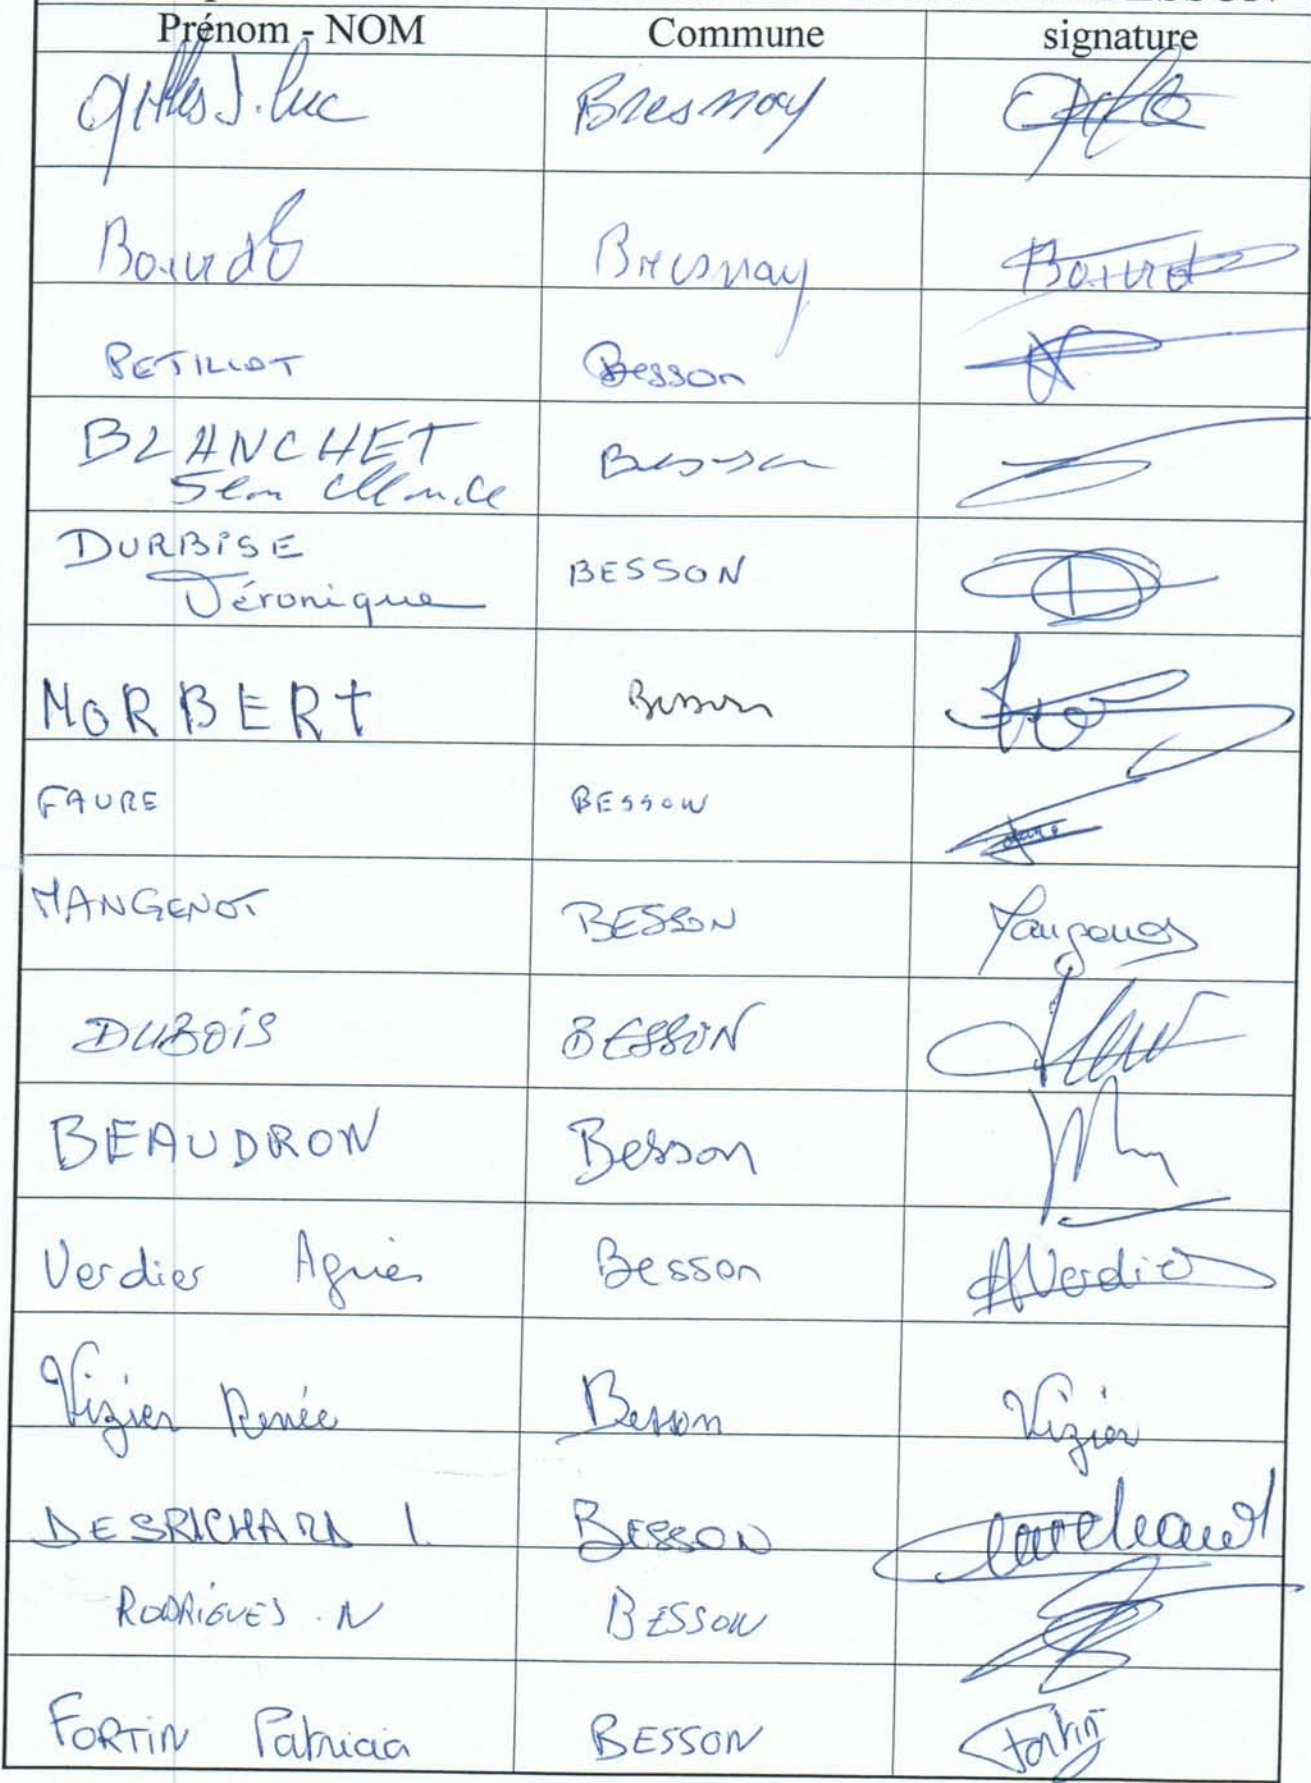 Prénom - NOM Commune signature
Gilles J. Luc Bresnay
Bresnay
PETILLOT Besson
BLANCHET Besson
DURBISE
Véronique BESSON
NORBERT Besson
FAURE BESSON
MANGENOT BESSON
DUBOIS BESSON
BEAUDRON Besson
Verdier Agnès Besson AVerdier
Vizier Renée Besson Vizier
DESRICHARD I. BESSON
RODRIGUES . N BESSON
FORTIN Patricia BESSON Fortin